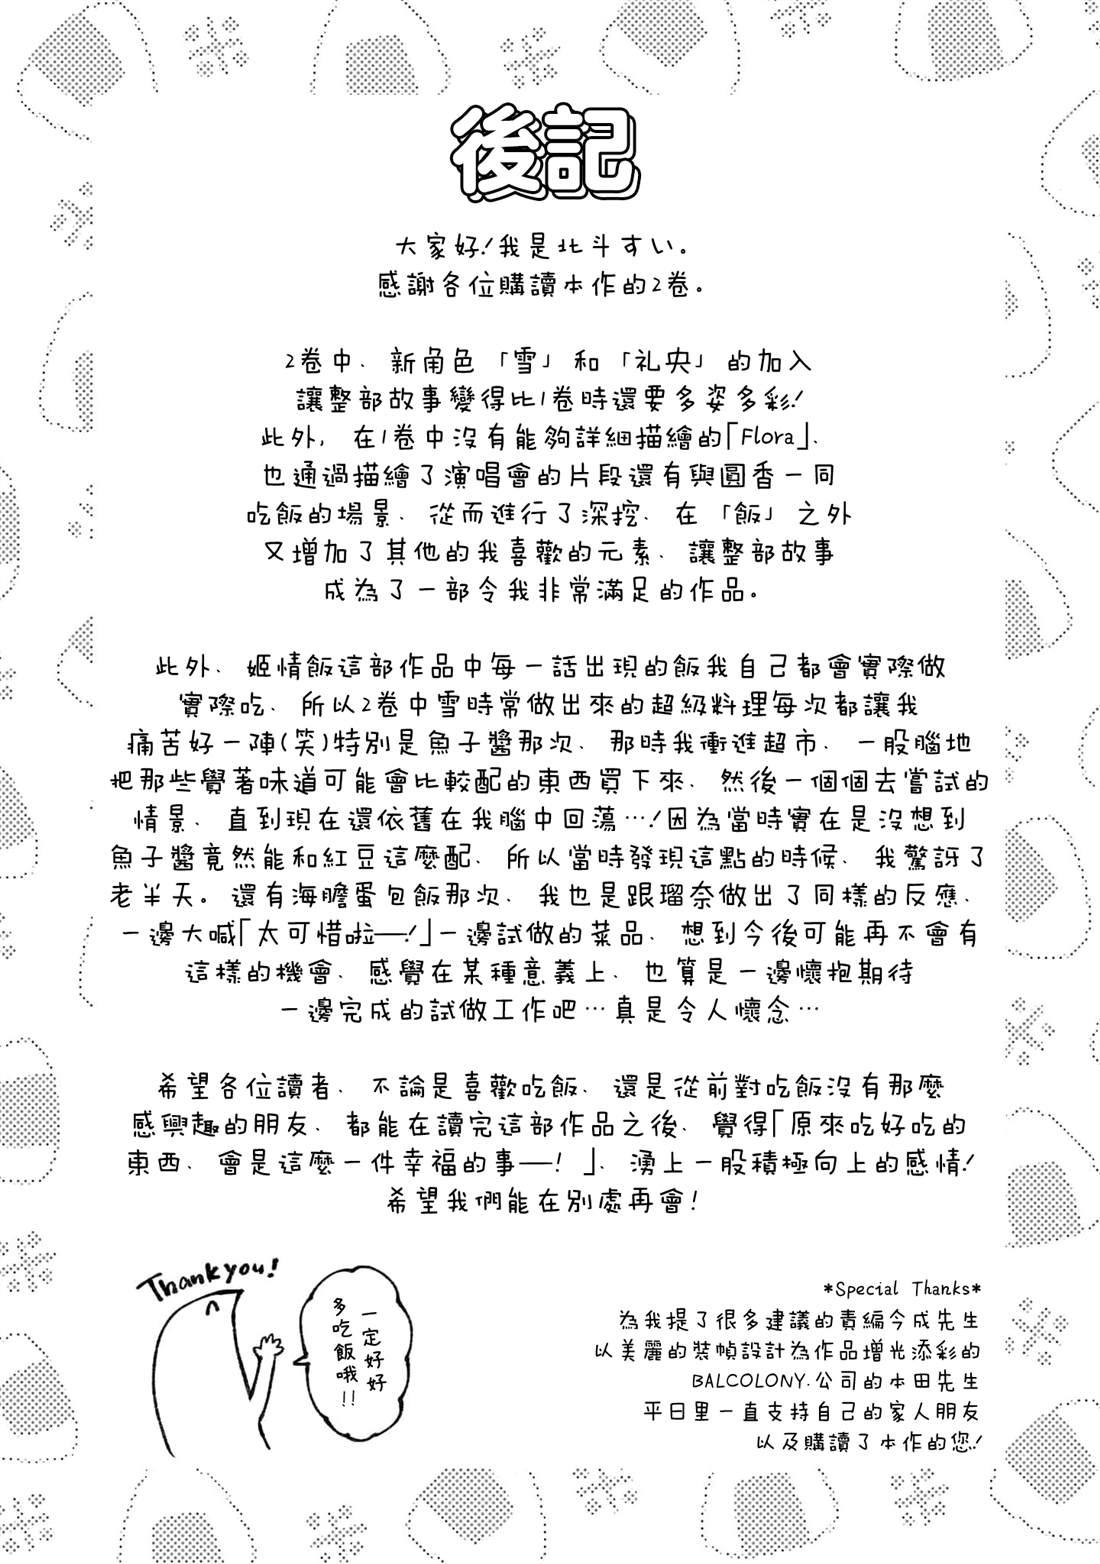 後記
大家好!我是北斗すい。
感謝各位購讀本作的2卷。
2卷中、新角色「雪」和「礼央」的加入
讓整部故事變得比1卷時還要多姿多彩!
此外, 在1卷中沒有能夠詳細描繪的「Flora」、
也通過描繪了演唱會的片段還有與圓香一同
吃飯的場景、從而進行了深挖、在「飯」之外
又增加了其他的我喜歡的元素、讓整部故事
成為了一部令我非常滿足的作品。
此外、姬情飯這部作品中每一話出現的飯我自己都會實際做
實際吃、所以2卷中雪時常做出來的超級料理每次都讓我
痛苦好一陣(笑)特別是魚子醬那次、那時我衝進超市、一股腦地
把那些覺著味道可能會比較配的東西買下來、然後一個個去嘗試的
情景、直到現在還依舊在我腦中回蕩…!因為當時實在是沒想到
魚子醬竟然能和紅豆這麼配、所以當時發現這點的時候、我驚訝了
老半天。還有海膽蛋包飯那次、我也是跟瑠奈做出了同樣的反應、
一邊大喊「太可惜啦——!」一邊試做的菜品、想到今後可能再不會有
這樣的機會、感覺在某種意義上、也算是一邊懷抱期待
一邊完成的試做工作吧…真是令人懷念…
希望各位讀者、不論是喜歡吃飯、還是從前對吃飯沒有那麼
感興趣的朋友、都能在讀完這部作品之後、覺得「原來吃好吃的
東西、會是這麼一件幸福的事——! 」、湧上一股積極向上的感情!
希望我們能在別處再會!
Thank you!
一定好好
多吃飯哦!!
*Special Thanks*
為我提了很多建議的責編今成先生
以美麗的裝幀設計為作品增光添彩的
BALCOLONY.公司的本田先生
平日里一直支持自己的家人朋友
以及購讀了本作的您!